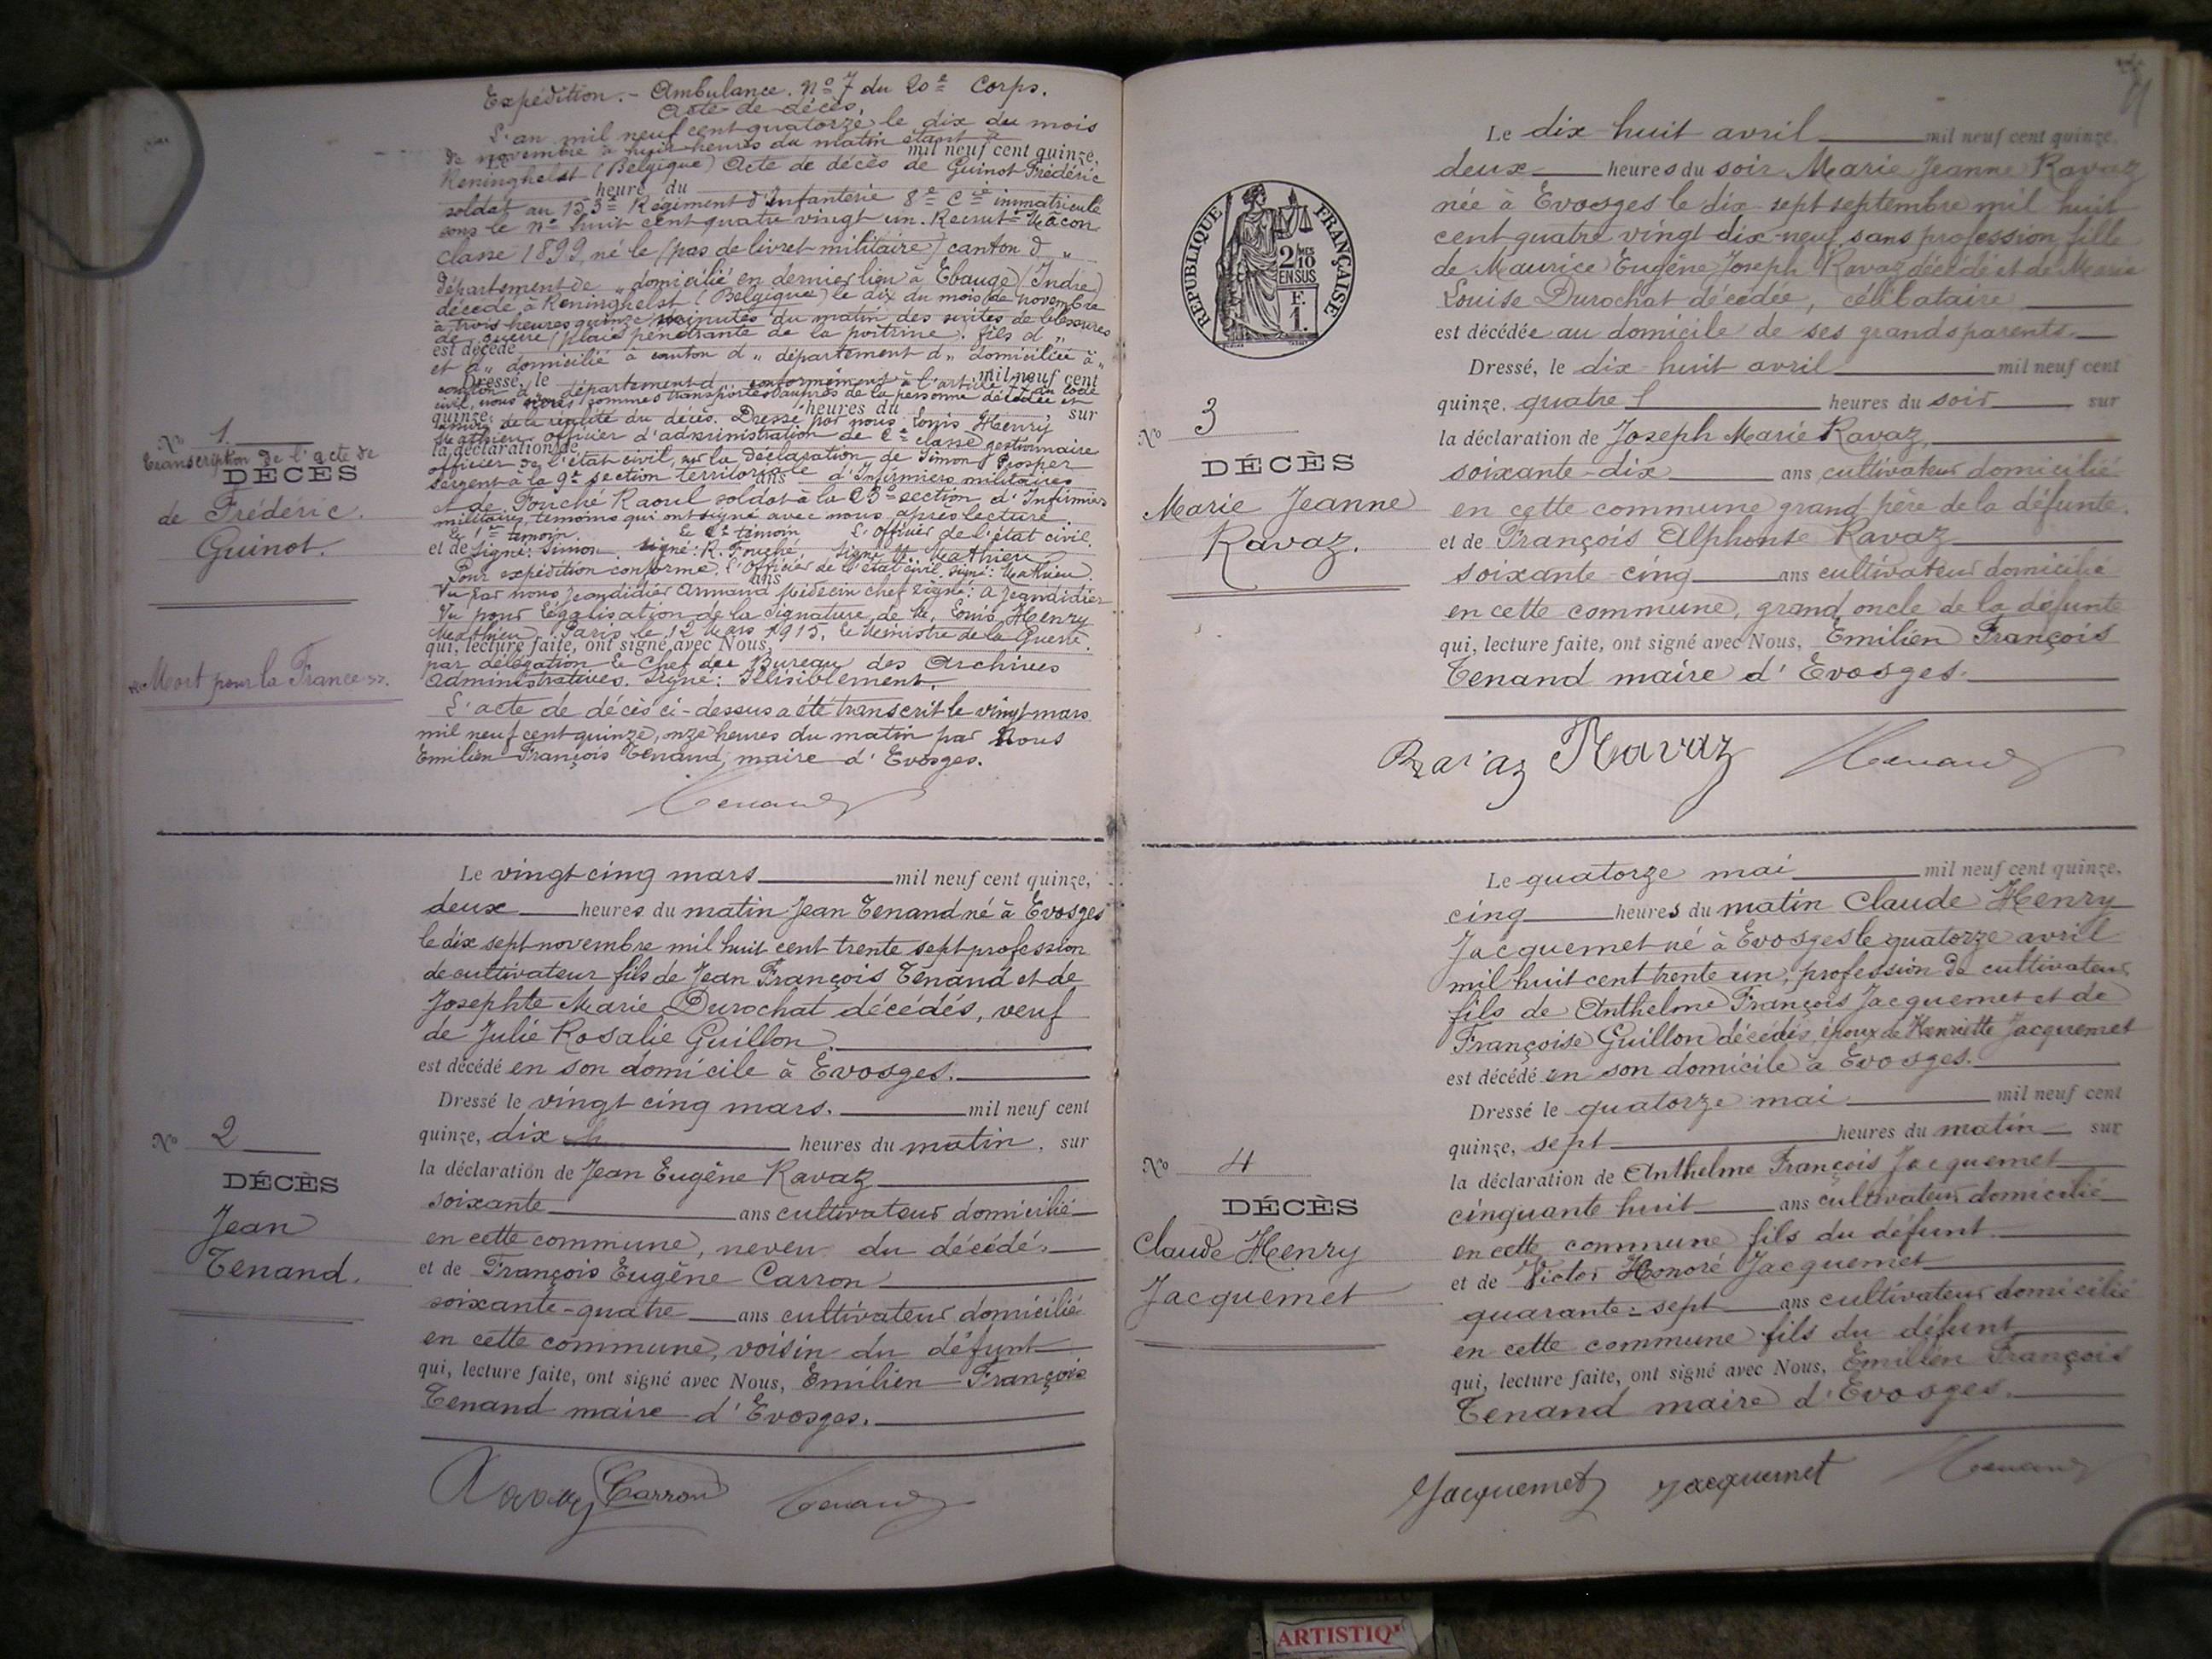 Expédition. - Ambulance. No 7 du 20e Corps.
Acte de décès.
L'an mil neuf cent quatorze le dix du mois
de novembre à huit heures du matin étant à
mil neuf cent quinze,
Reninghelst (Belgique) Acte de décès de Guinot Frédéric
heure du
soldat au 153e Régiment d'Infanterie 8e Cie immatriculé
sous le no huit cent quatre vingt un. Recrutt Mâcon
classe 1899 né le (pas de livret militaire) canton d "
département de " domicilié en dernier lieu à Ebauge (Indre)
décédé à Reninghelst (Belgique) le dix du mois de novembre
à trois heures quinze minutes du matin des suites de blessures
de guerre (plaie pénétrante de la poitrine. fils d "
est décédé
et d " domicilié à canton d " département d " domiciliée à "
Dressé, le mil neuf cent
canton d département d conformément à l'article 77 du code
civil, nous nous sommes transportés auprès de la personne décédée et
quinze, heures du sur
de la réalité du décès. Dressé par nous Louis Henry
Mathieu officier d'administration de 2e classe gestionnaire
la déclaration de
officier de l'état civil, sur la déclaration de Simon Prosper
sergent à la 9e section territoriale d'Infirmiers militaires
ans
et de Fouché Raoul soldat à la 23e section d'Infirmiers
militaires, témoins qui ont signé avec nous après lecture.
Le 1er témoin. Le 2e témoin L'officier de l'état civil.
et de Signé: Simon. signé: R. Fouché. Signé H. Mathieu
Pour expédition conforme. l'Officier de l'état civil. signé: Mathieu.
ans
Vu par nous Jeandidier Armand Médecin chef signé: A Jeandidier
Vu pour légalisation de la signature de M. Louis Henry
Mathieu. Paris le 12 Mars 1915. Le Ministre de la Guerre.
qui, lecture faite, ont signé avec Nous,
par délégation Le Chef du Bureau des Archives
Administratives. Signé: Illisiblement.
L'acte de décès ci-dessus a été transcrit le vingt mars
mil neuf cent quinze, onze heures du matin par Nous
Emilien François Tenand, maire d'Evosges.
Tenand
No 1
Transcription de l'acte de
DÉCÈS
de Frédéric
Guinot.
"Mort pour la France".
Le vingt cinq mars mil neuf cent quinze,
deux heures du matin Jean Tenand né à Evosges
le dix sept novembre mil huit cent trente sept profession
de cultivateur fils de Jean François Tenand et de
Josephte Marie Durochat décédés, veuf
de Julie Rosalie Guillon.
est décédé en son domicile à Evosges.
Dressé le vingt cinq mars. mil neuf cent
quinze, dix heures du matin, sur
la déclaration de Jean Eugène Ravaz
soixante ans cultivateur domicilié
en cette commune, neveu du décédé.
et de François Eugène Carron
soixante-quatre ans cultivateur domicilié
en cette commune, voisin du défunt
qui, lecture faite, ont signé avec Nous, Emilien François
Tenand maire d'Evosges.
Ravaz Carron Tenand
No 2
DÉCÈS
Jean
Tenand.
RÉPUBLIQUE FRANÇAISE
2/10MES
EN SUS
F.
1.
Le dix huit avril mil neuf cent quinze,
deux heures du soir Marie Jeanne Ravaz
née à Evosges le dix sept septembre mil huit
cent quatre vingt dix-neuf sans profession fille
de Maurice Eugène Joseph Ravaz décédé et de Marie
Louise Durochat décédée, célibataire
est décédée au domicile de ses grands parents.
Dressé, le dix huit avril mil neuf cent
quinze, quatre heures du soir sur
la déclaration de Joseph Marie Ravaz
soixante-dix ans cultivateur domicilié
en cette commune grand père de la défunte.
et de François Alphonse Ravaz
soixante-cinq ans cultivateur domicilié
en cette commune, grand oncle de la défunte
qui, lecture faite, ont signé avec Nous, Emilien François
Tenand maire d'Evosges.
Ravaz Ravaz Tenand
No 3
DÉCÈS
Marie Jeanne
Ravaz.
Le quatorze mai mil neuf cent quinze,
cinq heures du matin Claude Henry
Jacquemet né à Evosges le quatorze avril
mil huit cent trente un, profession de cultivateur
fils de Anthelme François Jacquemet et de
Françoise Guillon décédés, époux de Henriette Jacquemet
est décédé en son domicile à Evosges.
Dressé le quatorze mai mil neuf cent
quinze, sept heures du matin sur
la déclaration de Anthelme François Jacquemet
cinquante huit ans cultivateur domicilié
en cette commune fils du défunt
et de Victor Honoré Jacquemet
quarante-sept ans cultivateur domicilié
en cette commune fils du défunt
qui, lecture faite, ont signé avec Nous, Emilien François
Tenand maire d'Evosges.
Jacquemet Jacquemet Tenand
No 4
DÉCÈS
Claude Henry
Jacquemet
ARTISTIQ